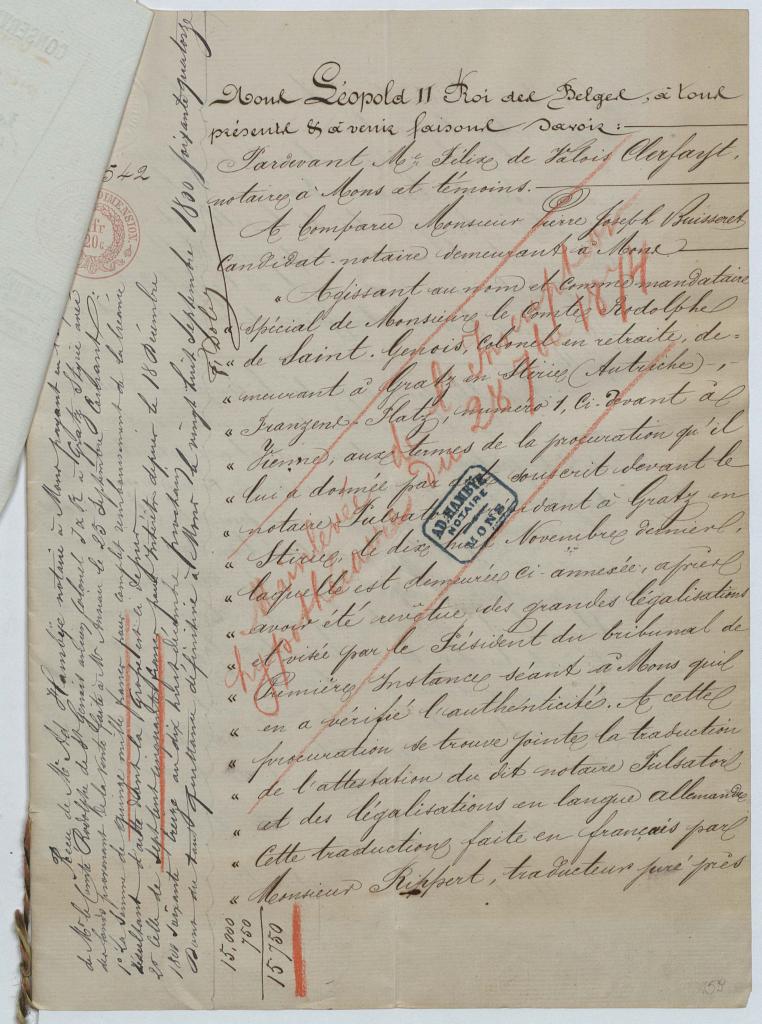 Nous Léopold II Roi des Belges, à tous
présents & à venir faisons savoir :
Pardevant Me Félix de Valois Clerfayt,
notaire à Mons et témoins.
A Comparu Monsieur Pierre Joseph Buisseret
Candidat-notaire demeurant à Mons
" Agissant au nom et comme mandataire
" spécial de Monsieur le Comte Rodolphe
" de Saint-Genois, Colonel en retraite, de=
" meurant à Gratz en Stirie (Autriche),
" Franzens-Platz, numéro 1, Ci-devant à
" Vienne, aux termes de la procuration qu'il
" lui a donnée par souscrit devant le
" notaire Pulsator à Gratz en
" Stirie, le dix Novembre dernier,
" laquelle est demeurée ci-annexée, après
" avoir été revêtue des grandes légalisations
" et visée par le Président du tribunal de
" Première Instance séant à Mons qui
" en a vérifié l'authenticité. A cette
" procuration se trouve jointe la traduction
" de l'attestation du dit notaire Pulsator
" et des légalisations en langue allemande
" Cette traduction faite en français par
" Monsieur Rippert, traducteur juré près
Mainlevée de l'Inscription
hypothécaire Du 28 7bre 1874
AD. HAMBYE
NOTAIRE
MONS
542
DIMENSION.
1fr
20c
Reçu de Mr Ad Hambÿe notaire à Mons payant en
de Mr le Comte Rodolphe de St Genois ancien Colonel I & R à Gratz Styrie avec
des fonds provenant de la vente faite à Mr Anneau le 23 Septembre Courant :
1° La Somme de quinze mille francs pour complet remboursement de la créance
résultant d'acte dont la Grosse est ci
2° Celle de Sept cent cinquante francs pour intérêts depuis le 18 Décembre
1800 soixante treize au dix huit Décembre prochain
Dont du tout quittance définitive à Mons le vingt huit Septembre 1800 soixante quatorze
15,000
750
15 750
159